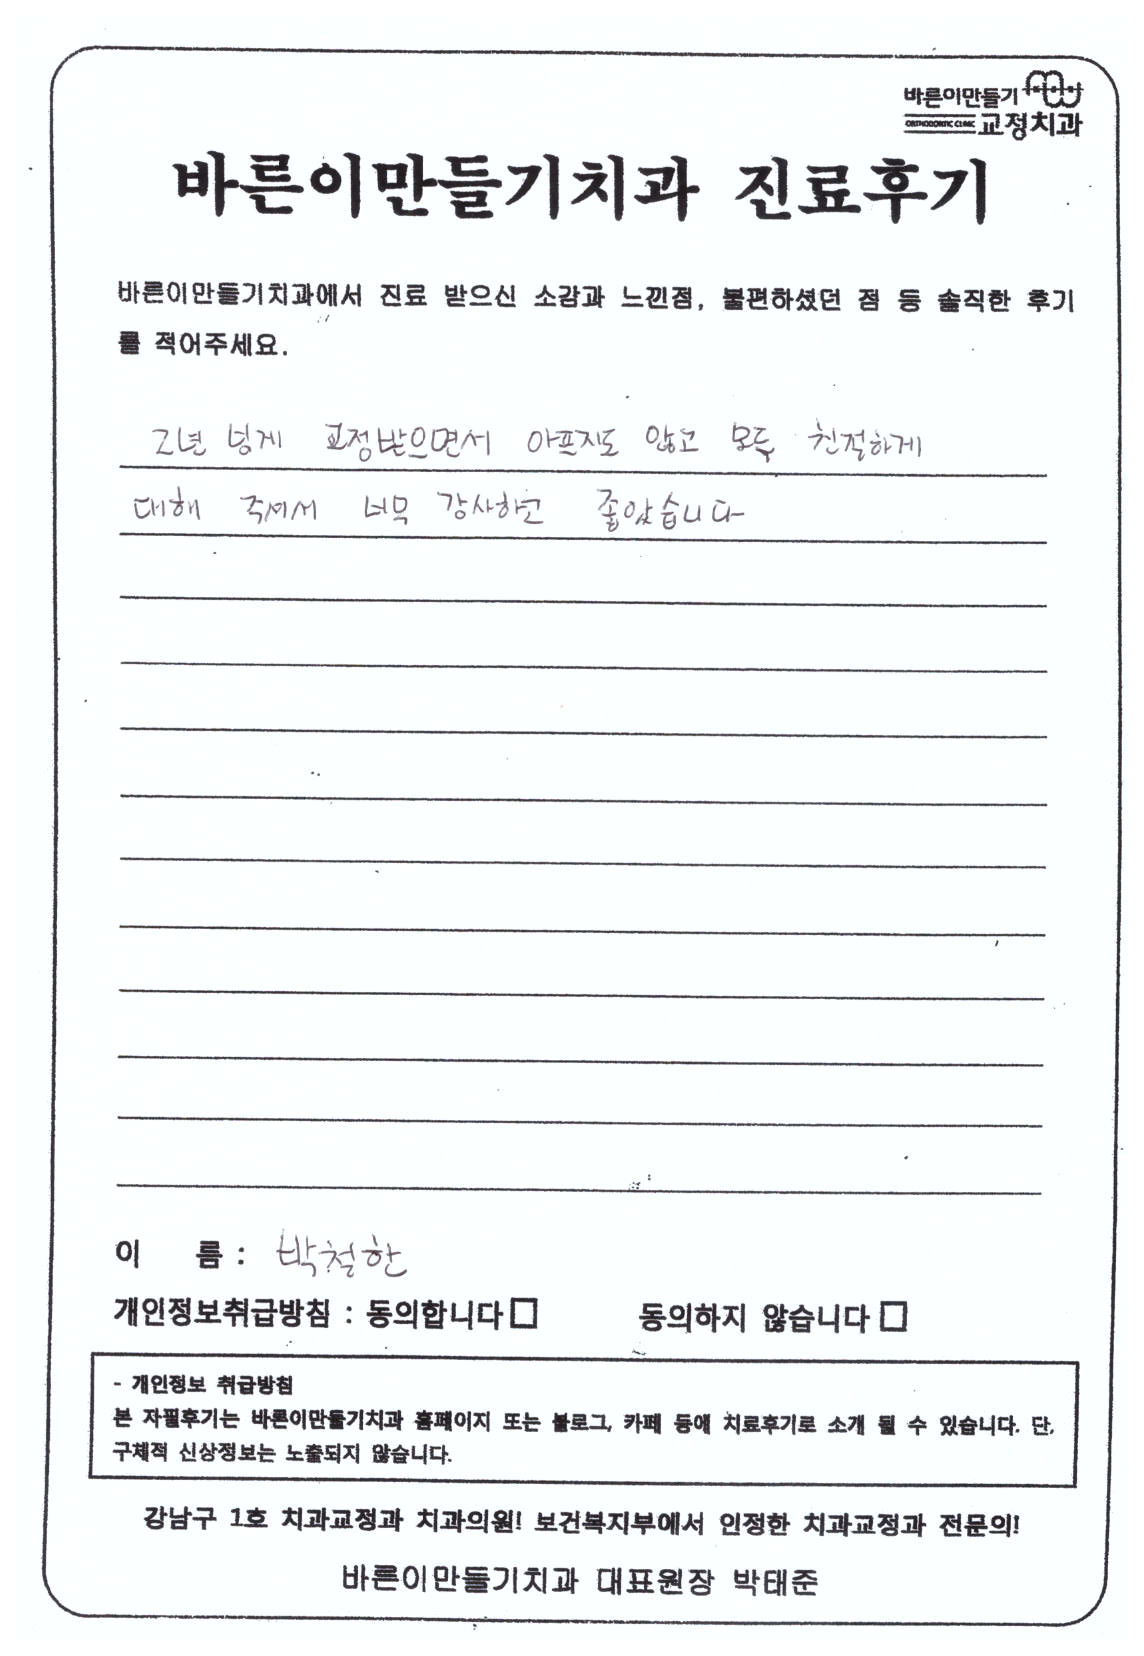 바른이만들기
ORTHODONTIC CLINIC 교정치과
바른이만들기치과 진료후기
바른이만들기치과에서 진료 받으신 소감과 느낀점, 불편하셨던 점 등 솔직한 후기
를 적어주세요.
2년 넘게 교정받으면서 아프지도 않고 모두 친절하게
대해 주셔서 너무 감사하고 좋았습니다
이 름 : 박철한
개인정보취급방침 : 동의합니다□ 동의하지 않습니다□
- 개인정보 취급방침
본 자필후기는 바른이만들기치과 홈페이지 또는 블로그, 카페 등에 치료후기로 소개 될 수 있습니다. 단,
구체적 신상정보는 노출되지 않습니다.
강남구 1호 치과교정과 치과의원! 보건복지부에서 인정한 치과교정과 전문의!
바른이만들기치과 대표원장 박태준